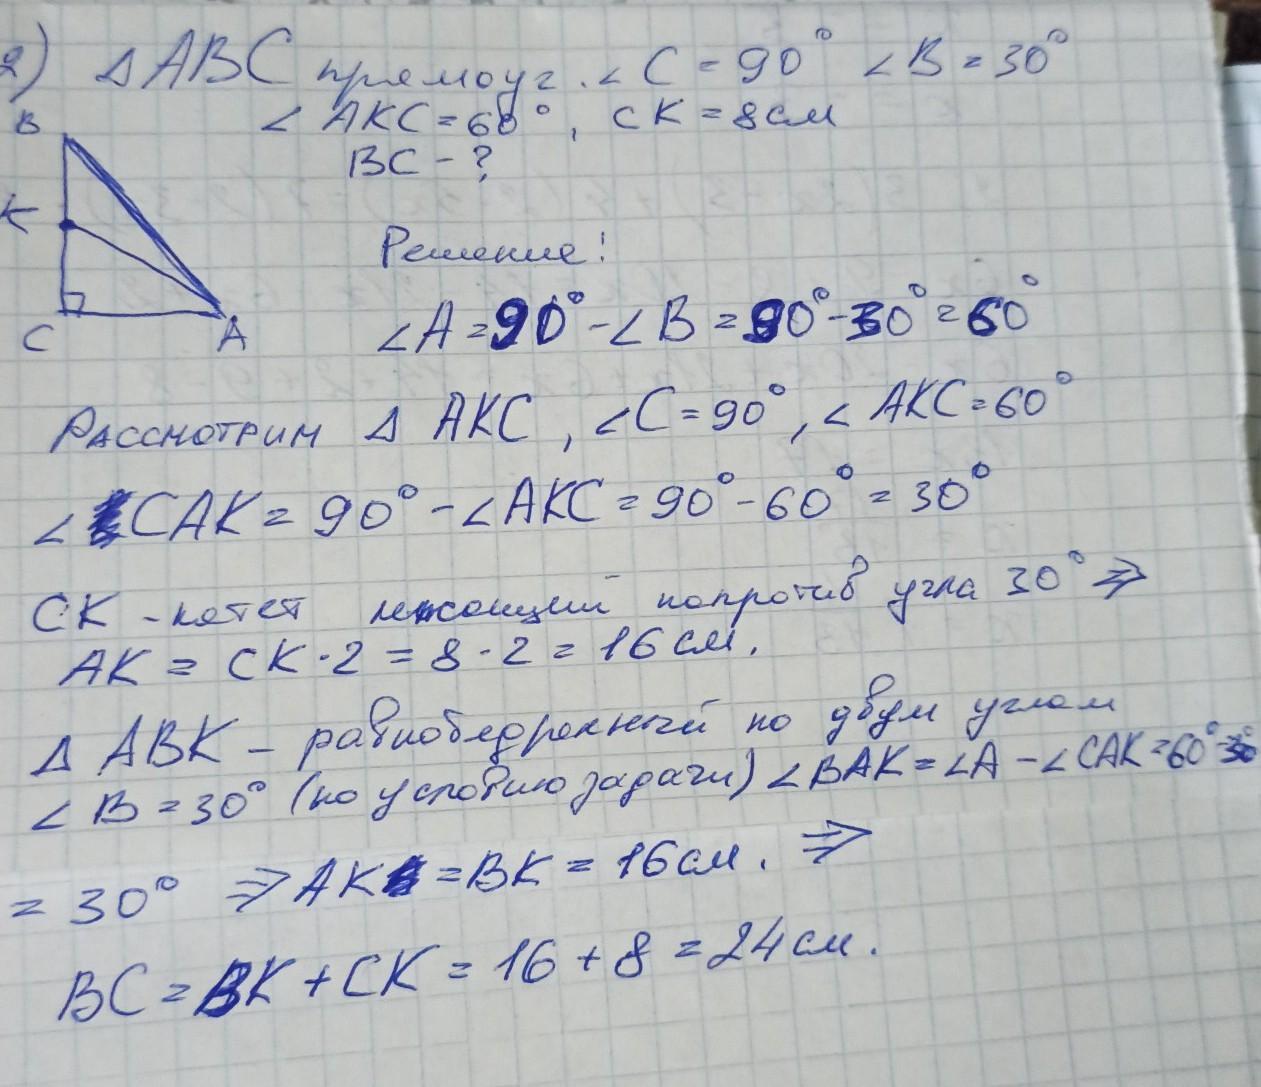 2) Δ ABC прямоуг. ∠ C = 90° ∠ B = 30°
∠ AKC = 60°, CK = 8 см
BC - ?
B
K
C
A
Решение:
∠A = 90° - ∠B = 90° - 30° = 60°
Рассмотрим Δ AKC, ∠C = 90°, ∠ AKC = 60°
∠ CAK = 90° - ∠AKC = 90° - 60° = 30°
CK - катет лежащий напротив угла 30° ⇒
AK = CK · 2 = 8 · 2 = 16 см.
Δ ABK - равнобедренный по двум углам
∠ B = 30° (по условию задачи) ∠BAK = ∠A - ∠CAK = 60° - 30°
= 30° ⇒ AK = BK = 16 см. ⇒
BC = BK + CK = 16 + 8 = 24 см.